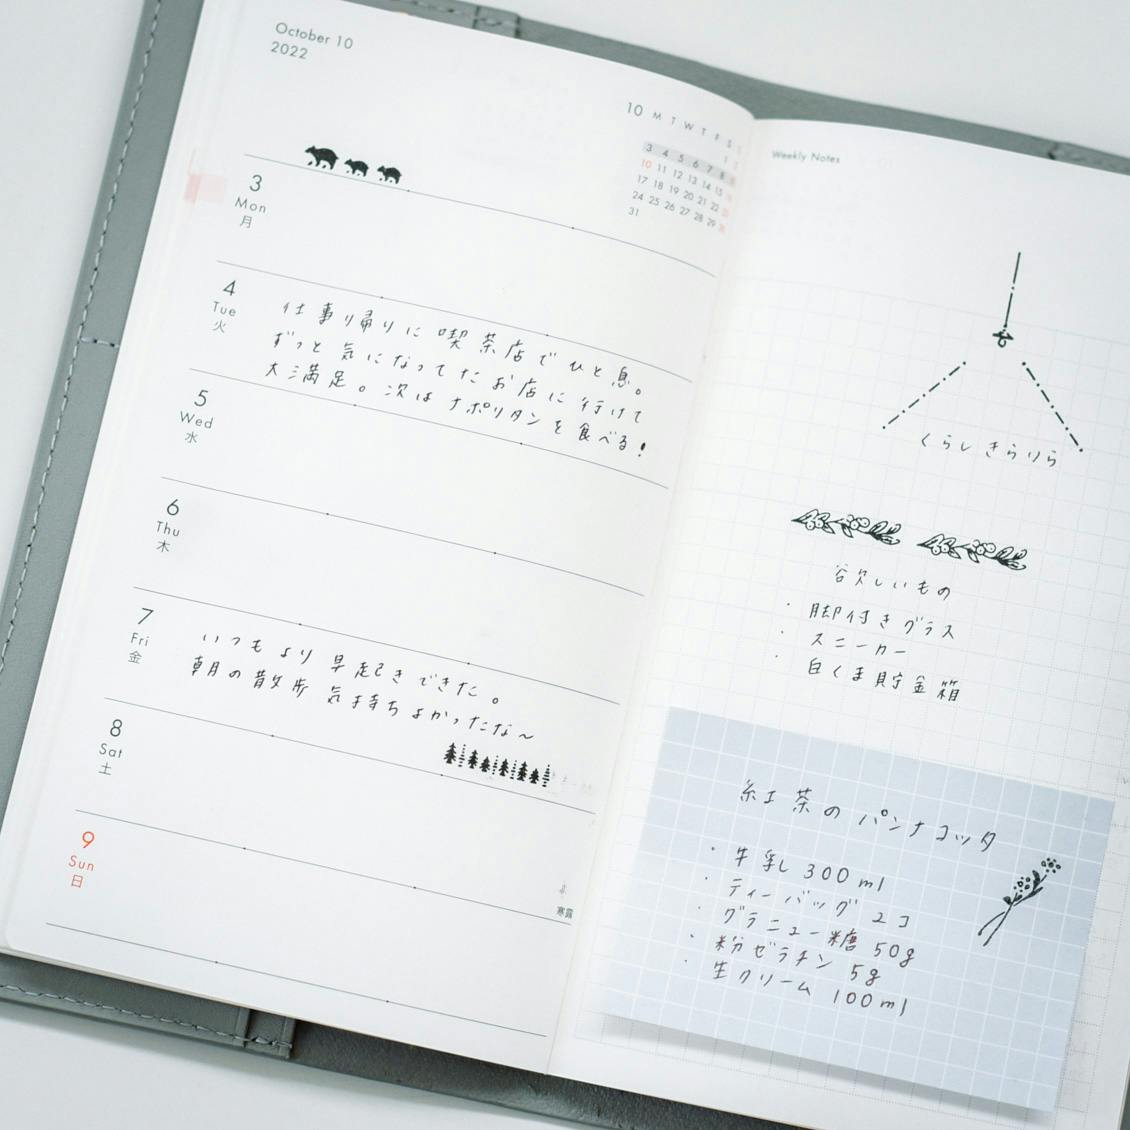 October 10
2022
10 M T W T F S S
1 2
3 4 5 6 7 8 9
10 11 12 13 14 15 16
17 18 19 20 21 22 23
24 25 26 27 28 29 30
31
3
Mon
月
4
Tue
火
仕事り帰りに喫茶店でひと息。
ずっと気になってたお店に行けて
大満足。次はナポリタンを食べる!
5
Wed
水
6
Thu
木
7
Fri
金
いつもより早起きできた。
朝の散歩気持ちよかったな〜
8
Sat
土
9
Sun
日
寒露
Weekly Notes
くらしきらりら
欲しいもの
・脚付きグラス
・スニーカー
・白くま貯金箱
紅茶のパンナコッタ
・牛乳し 300ml
・ティーバッグ 2コ
・グラニュー糖 50g
・粉ゼラチン 5g
・生クリーム 100ml